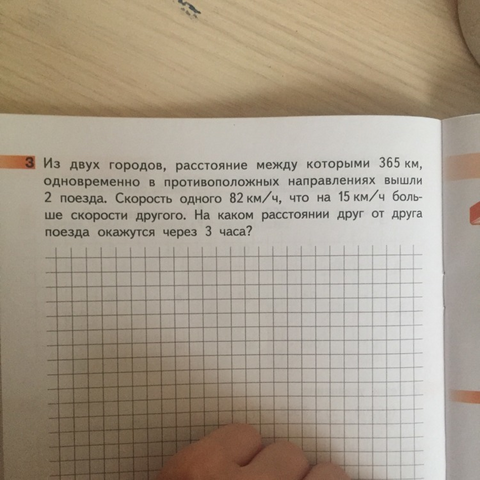 3 Из двух городов, расстояние между которыми 365 км,
одновременно в противоположных направлениях вышли
2 поезда. Скорость одного 82 км/ч, что на 15 км/ч боль-
ше скорости другого. На каком расстоянии друг от друга
поезда окажутся через 3 часа?